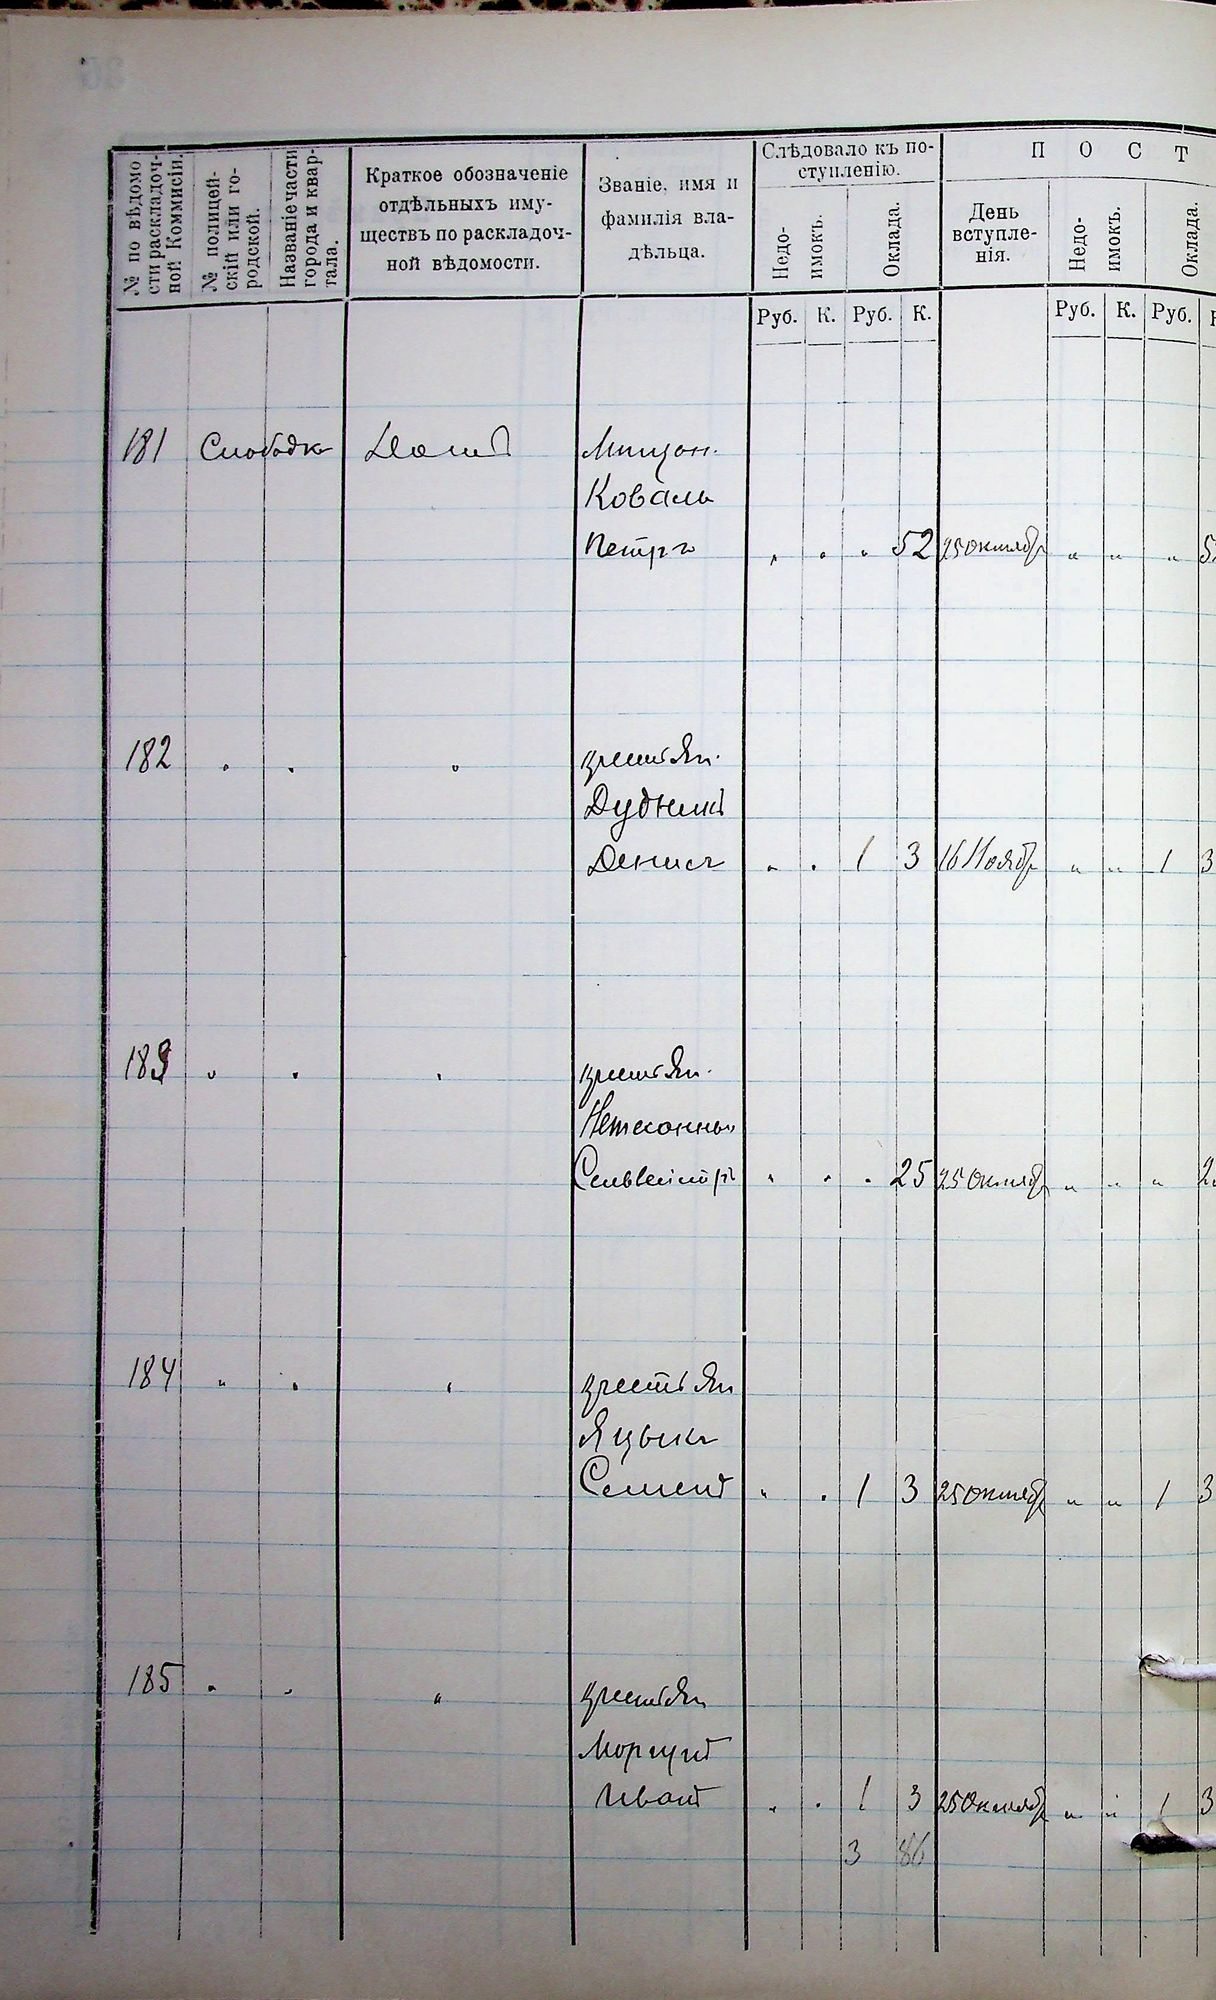 № по вѣдомо
сти раскладоч-
ной Коммисіи.
№ полицей-
скій или го-
родской.
Названіе части
города и квар-
тала.
Краткое обозначеніе
отдѣльныхъ иму-
ществъ по раскладоч-
ной вѣдомости.
Званіе, имя и
фамилія вла-
дѣльца.
Слѣдовало къ по-
ступленію.
Недо-
имокъ.
Оклада.
П О С Т
День
вступле-
нія.
Недо-
имокъ.
Оклада.
Руб. К. Руб. К. Руб. К. Руб.
181 Слободка Домъ
Коваль
Петръ " " " 52 25 Октябр " " " 5
182 " " " крестьян.
Дудникъ
Денисъ " " 1 3 16 Ноябр " " 1 3
183 " " " крестьян.
Сельвестръ " " " 25 25 Октябр " " " 2
184 " " " крестьян
Яцына
Семенъ " " 1 3 25 Октябр " " 1 3
185 " " " крестьян
Моргунъ
Иванъ " " 1 3 25 Октябр " " 1 3
3 86